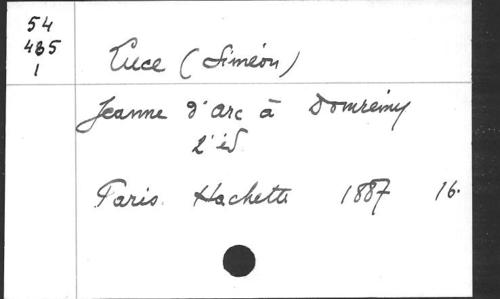 54
485
1
Luce (Siméon)
Jeanne d'Arc à Domrémy
2' éd
Paris. Hachette 1887 16.